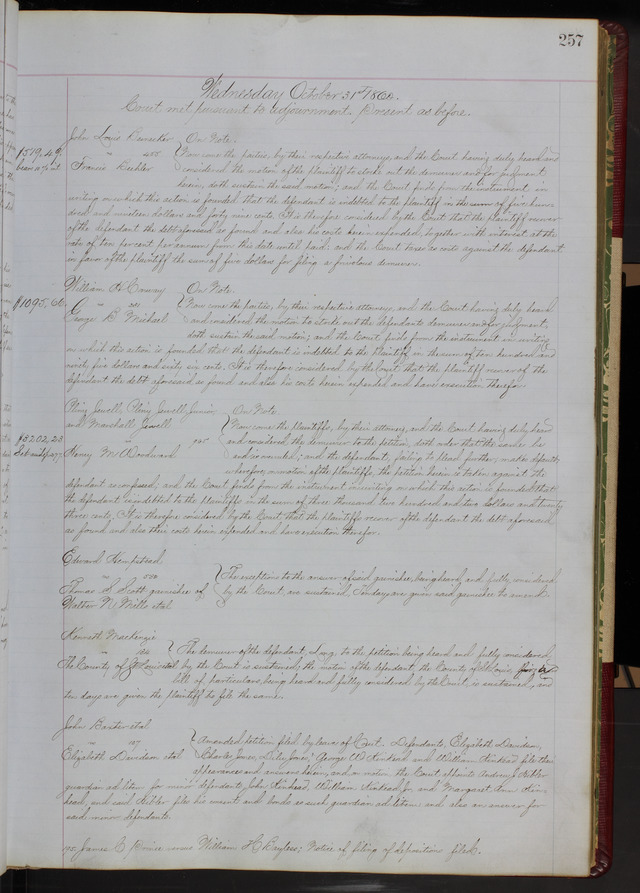 257
Wednesday October 31st 1860.
Court met pursuant to adjournment. Present as before.
John Louis
On Note.
$519.49
vs
Now come the parties, by their respective attorneys, and the Court having duly heard and
Francis
considered the motion of the plaintiff to strike out the demurrer and for judgment
herein, doth sustain the said motion; and the Court finds from the instrument in
writing on which this action is founded that the defendant is indebted to the plaintiff in the sum of five hun-
dred and nineteen dollars and forty nine cents. It is therefore considered by the Court that the plaintiff recover
of the defendant the debt aforesaid as found and also his costs herein expended, together with interest at the
rate of ten percent per annum from this date until paid; and the Court taxes as costs against the defendant
in favor of the plaintiff the sum of five dollars for filing a frivolous demurrer.
William H Conway
On Note.
$1095,66
Now come the parties, by their respective attorneys, and the Court having duly heard
George B Michael
and considered the motion to strike out the defendants demurrer and for judgment,
doth sustain the said motion; and the Court finds from the instrument in writing
on which this action is founded that the defendant is indebted to the plaintiff in the sum of ten hundred and
ninety five dollars and sixty six cents. It is therefore considered by the Court that the plaintiff recover of the
defendant the debt aforesaid as found and also his costs herein expended and have execution therefor.
Pliny Jewell, Pliny Jewell Junior
On Note
and Marshall Jewell
Now come the plaintiffs, by their attorney, and the Court having duly heard
$3202,23
vs
and considered the demurrer to the petition, doth order that the same be
Henry M Woodward
and overruled; and the defendant, failing to plead further, makes default;
wherefore, on motion of the plaintiffs, the petition herein is taken against the
defendant as confessed; and the Court finds from the instrument in writing on which this action is founded that
the defendant is indebted to the plaintiffs in the sum of three thousand two hundred and two dollars and twenty
three cents; It is therefore considered by the Court that the plaintiffs recover of the defendant the debt aforesaid
as found and also their costs herein expended and have execution therefor.
Edward Hempstead
The exceptions to the answer of said garnishee, being heard and fully considered
Thomas S. Scott garnishee of
by the Court, are sustained. Ten days are given said garnishee to amend.
Walter N. Mills etal
Kenneth Mackenzie
The demurrer of the defendant, to the petition being heard and fully considered
The County of St Louis etal
by the Court is sustained; the motion of the defendant, the County of St Louis, for a
bill of particulars, being heard and fully considered by the Court, is sustained, and
ten days are given the plaintiff to file the same.
John Baxter etal
Amended petition filed by leave of Court. Defendants, Elizabeth Davidson,
Elizabeth Davidson etal
Charles Jones, Jones, George W Kinkead and William Kinkead file their
appearance and answers herein; and, on motion, the Court appoints Andrew J Hibler
guardian ad litem for minor defendants John Kinkead, William Kinkead Jr. and Margaret Ann Kin-
kead, and said Hibler files his consent and bonds as such guardian ad litem and also an answer for
said minor defendants.
James C versus William H Bayless; Notice of filing of depositions filed.